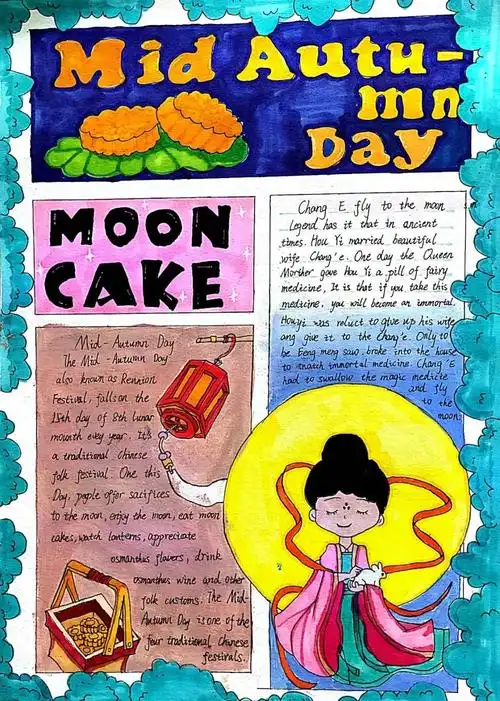 Mid Autu-
mn
Day
MOON
CAKE
Chang E fly to the moon
Legend has it that in ancient
times. Hou Yi married beautiful
wife Chang'e. One day the Queen
Morther gave Hou Yi a pill of fairy
medicine. It is that if you take this
medicine, you will become an immortal.
Houyi was reluct to give up his wife
ang give it to the Chang'e. Only to
be Feng meng saw, broke into the house
to snatch immortal medicine. Chang'E
had to swallow the magic medicte
and fly
to the
moon.
Mid-Autumn Day
The Mid-Autumn Day
also known as Reunion
Festival, falls on the
15th day of 8th lunar
mounth evey year. It's
a traditional Chinese
folk festival. One this
Day, people offer sacrifices
to the moon, enjoy the moon, eat moon
cakes, watch lanterns, appreciate
osmanthus flowers, drink
osmanthus wine and other
folk customs. The Mid-
Autumn Day is one of the
four traditional Chinese
festivals.